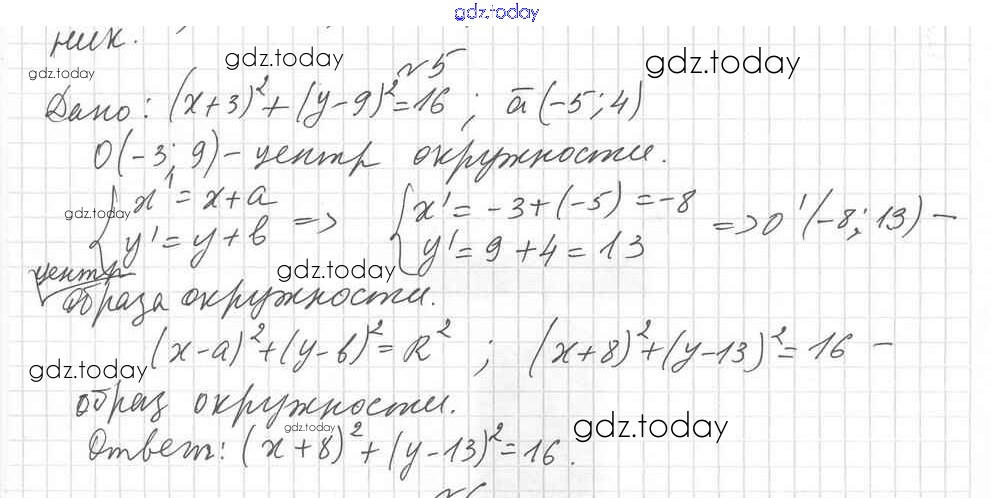 gdz.today
ник.
gdz.today
№5
gdz.today
gdz.today
Дано: (x+3)²+(y-9)²=16; ā(-5;4)
O(-3;9) - центр окружности.
{x'=x+a => {x'=-3+(-5)=-8
gdz.today
{y'=y+b {y'=9+4=13 => O'(-8;13) -
центр
gdz.today
образа окружности.
(x-a)²+(y-b)²=R²; (x+8)²+(y-13)²=16 -
gdz.today
образ окружности.
gdz.today
gdz.today
Ответ: (x+8)²+(y-13)²=16.
№6